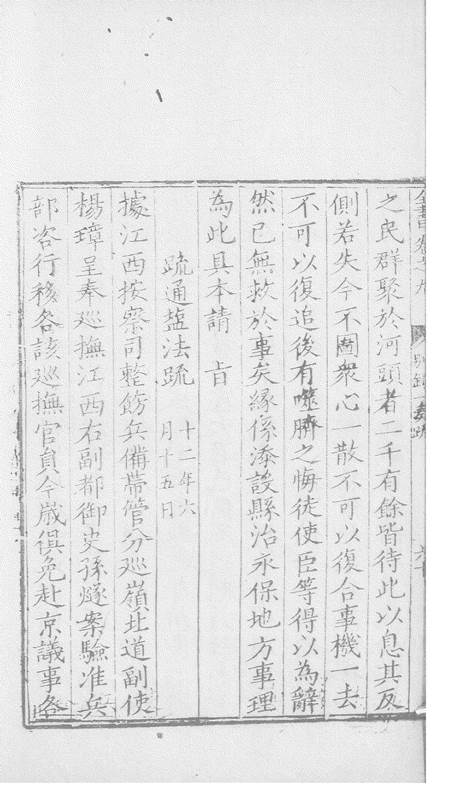 之民群聚於河頭者二千有餘皆待此以息其反
側若失今不圖衆心一散不可以復合事機一去
不可以復追後有噬臍之悔徒使臣等得以為辭
然已無救於事矣緣係添設縣治永保地方事理
為此具本請　旨
疏通塩法疏
十二年六
月十五日
據江西按察司整飭兵備帶管分巡嶺北道副使
楊璋呈奉巡撫江西右副都御史孫燧案驗准兵
部咨行移各該巡撫官員今歲俱免赴京議事各